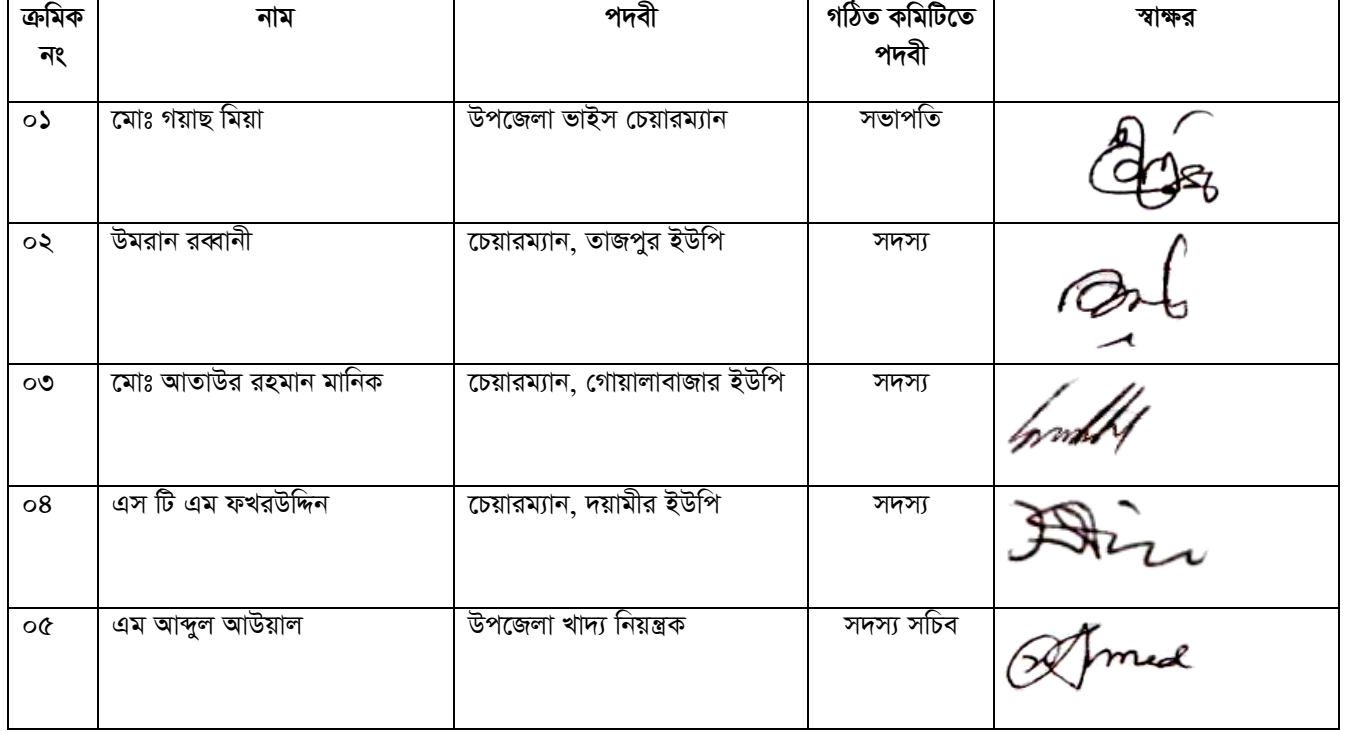 ক্রমিক নং নাম পদবী গঠিত কমিটিতে পদবী স্বাক্ষর
০১ মোঃ গয়াছ মিয়া উপজেলা ভাইস চেয়ারম্যান সভাপতি
০২ উমরান রব্বানী চেয়ারম্যান, তাজপুর ইউপি সদস্য
০৩ মোঃ আতাউর রহমান মানিক চেয়ারম্যান, গোয়ালাবাজার ইউপি সদস্য
০৪ এস টি এম ফখরউদ্দিন চেয়ারম্যান, দয়ামীর ইউপি সদস্য
০৫ এম আব্দুল আউয়াল উপজেলা খাদ্য নিয়ন্ত্রক সদস্য সচিব